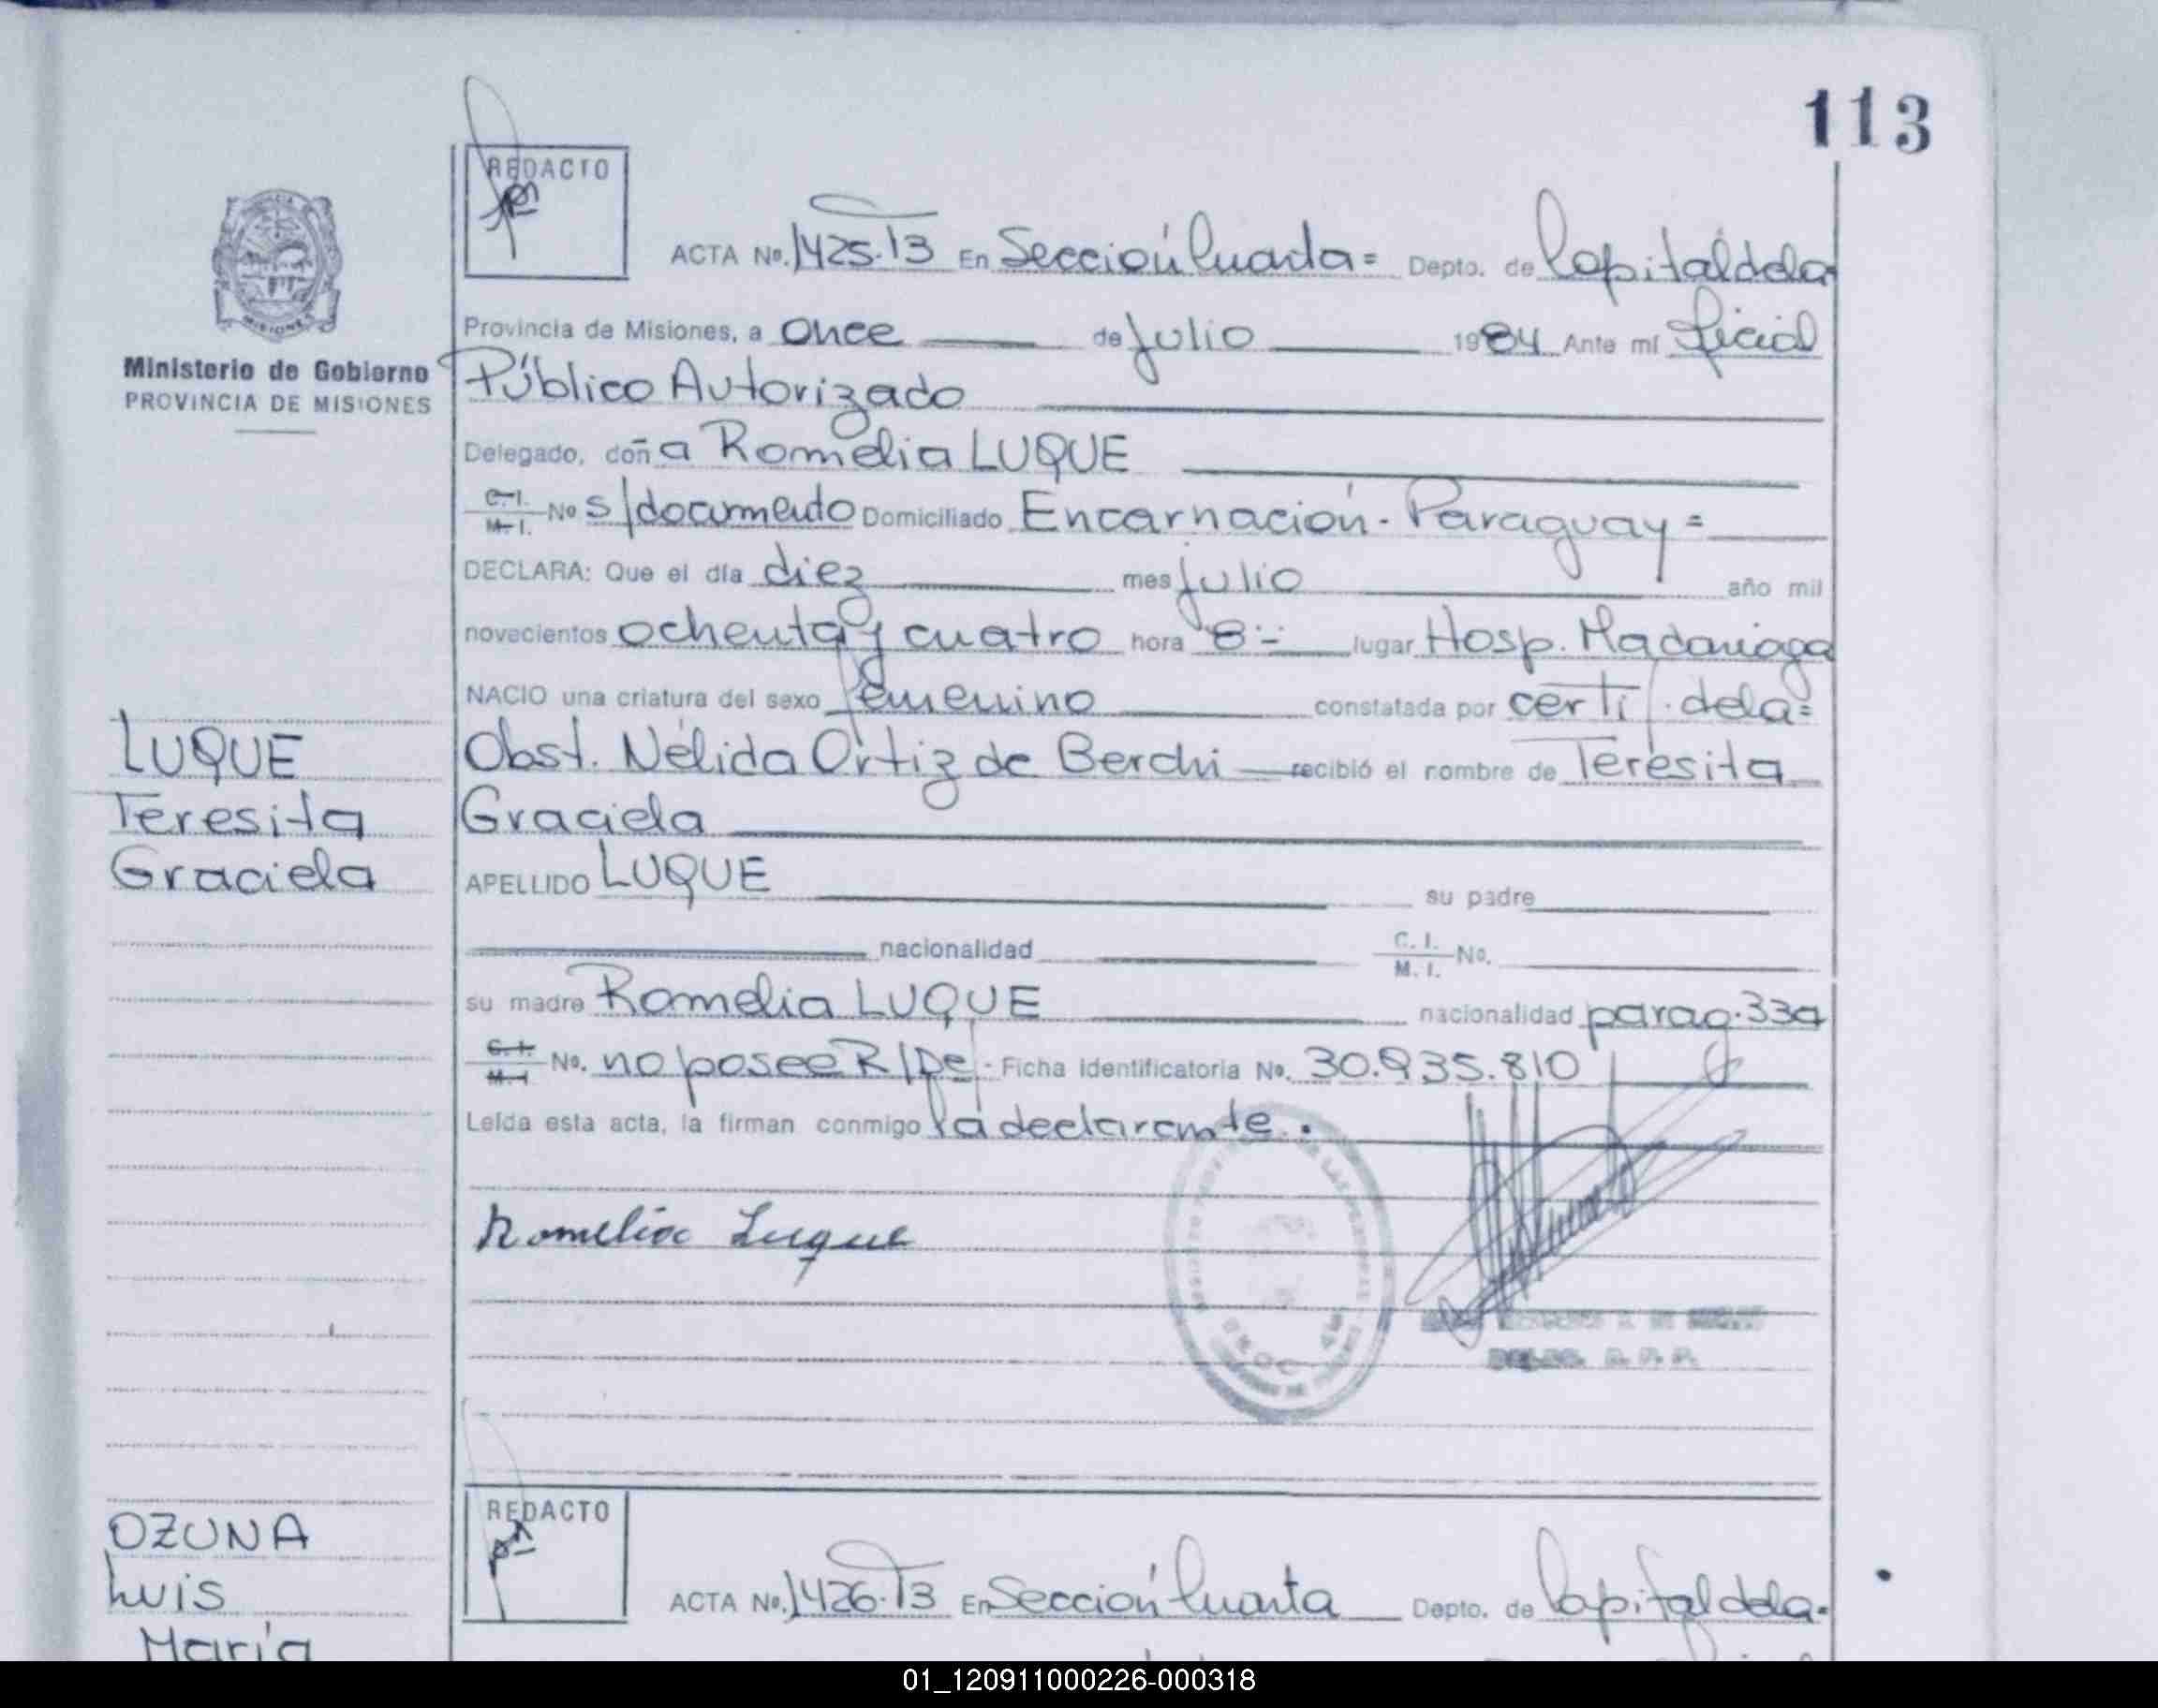 113
REDACTO
ACTA Nº. 1425.T3 En Sección Cuarta= Depto. de Capital de la
Provincia de Misiones, a once de Julio 1984 Ante mí Oficial
Ministerio de Gobierno
PROVINCIA DE MISIONES
MISIONES
Público Autorizado
Delegado, doña Romelia LUQUE
C.I. M.I. Nº s/documento Domiciliado Encarnación - Paraguay =
DECLARA: Que el día diez mes Julio año mil
novecientos ochenta y cuatro hora 8 lugar Hosp. Madariaga
NACIO una criatura del sexo femenino constatada por certif. de la=
LUQUE
Teresita
Graciela
Obst. Nélida Ortiz de Berchi recibió el nombre de Teresita
Graciela
APELLIDO LUQUE su padre
nacionalidad C. I. M. I. No.
su madre Romelia LUQUE nacionalidad parag. 33a
C. I. M. I No. no posee R/De/- Ficha Identificatoria No. 30.935.810
Leída esta acta, la firman conmigo la declarante.
Romelia Luque
OZUNA
Luis
María
REDACTO
ACTA Nº. 1426.T3 En Sección Cuarta Depto. de Capital de la.
01_120911000226-000318